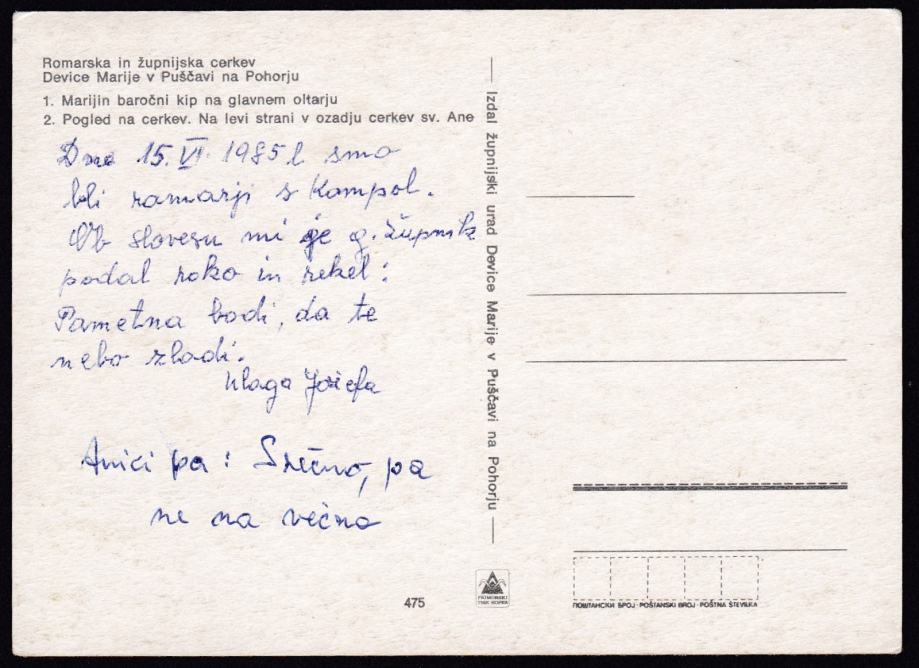 Romarska in župnijska cerkev
Device Marije v Puščavi na Pohorju
1. Marijin baročni kip na glavnem oltarju
2. Pogled na cerkev. Na levi strani v ozadju cerkev sv. Ane
Dne 15. VI. 1985 l smo
bli romarji s Kompol.
Ob slovesu mi je g. župnik
podal roko in rekel:
Pametna bodi, da te
nebo zlodi.
Vlaga Jožefa
Anici pa: Srečno, pa
ne na večno
475
Izdal župnijski urad Device Marije v Puščavi na Pohorju
PRIMORSKI
TISK KOPER
ПОШТАНСКИ БРОЈ · POŠTANSKI BROJ · POŠTNA ŠTEVILKA